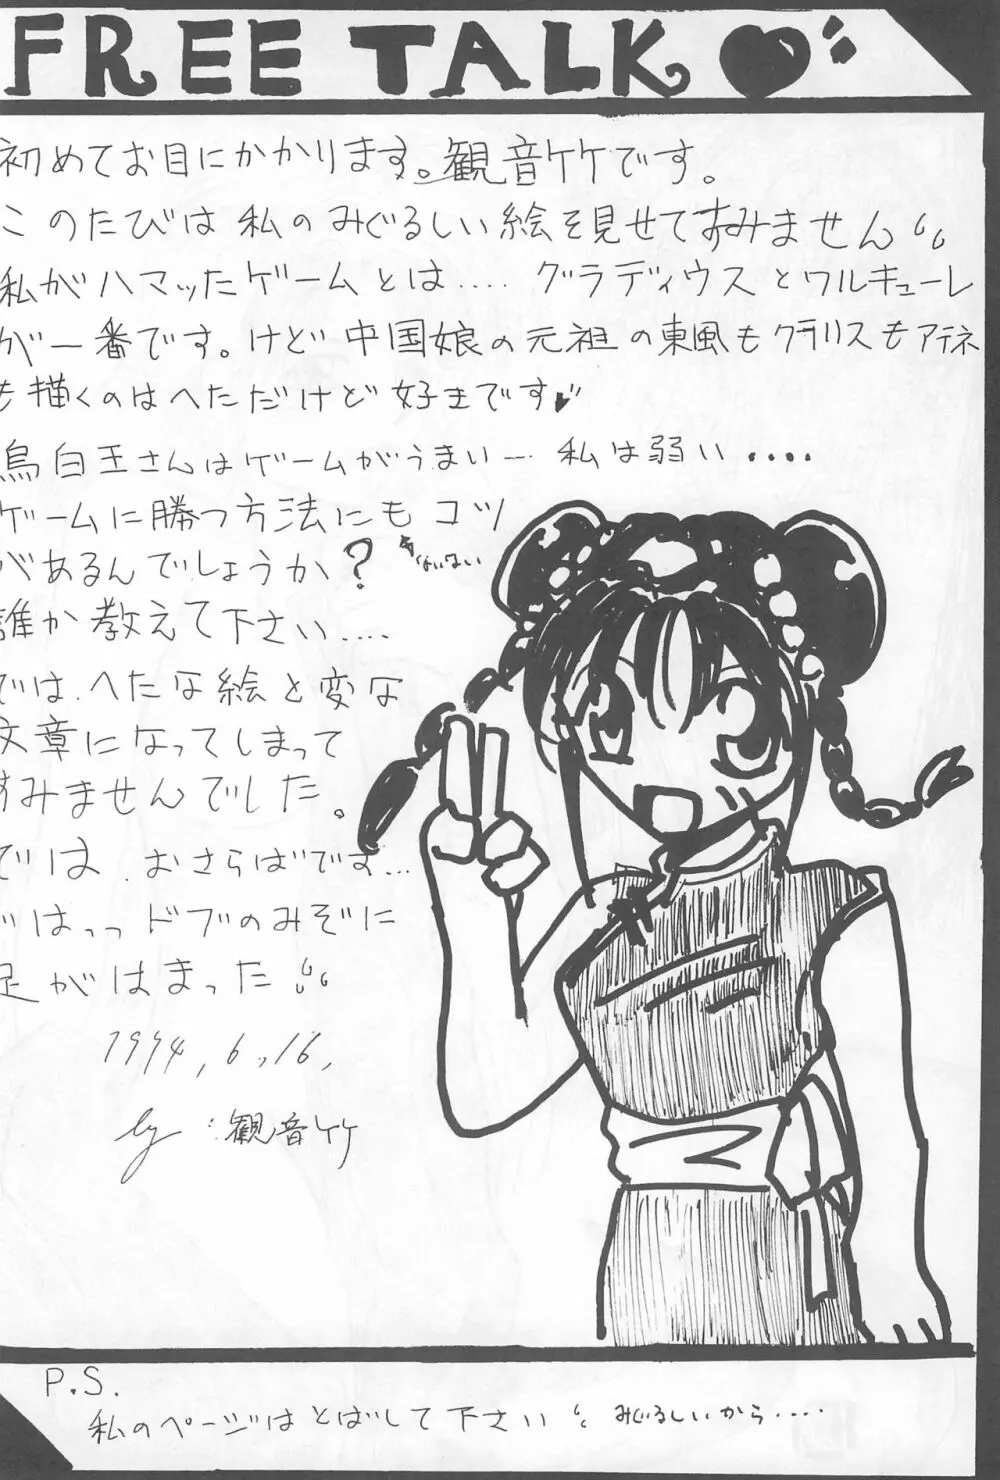 FREE TALK ♥
初めてお目にかかります。観音竹です。
このたびは私のみぐるしい絵を見せてすみません
私がハマッたゲームとは.... グラディウスとワルキューレ
が一番です。けど中国娘の元祖の東風もクラリスもアテネ
も描くのはへただけど好きです♥
鳥白王さんはゲームがうまいー 私は弱い、....
ゲームに勝つ方法にもコツ
があるんでしょうか?
ないない
誰か教えて下さい....
では、へたな絵と変な
文章になってしまって
すみませんでした。
では、おさらばです...
ではっっドブのみぞに
足がはまった
1994, 6, 16,
by:観音竹
P.S.
私のページはとばして下さい みぐるしいから....